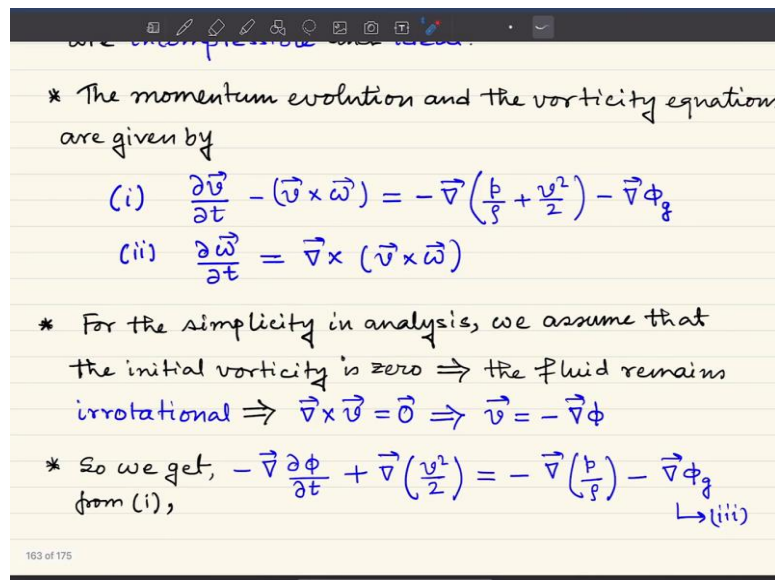 are incompressible and ideal.
* The momentum evolution and the vorticity equation
are given by
(i) ∂v⃗/∂t - (v⃗ × ω⃗) = - ∇⃗(p/ρ + v²/2) - ∇⃗Φg
(ii) ∂ω⃗/∂t = ∇⃗ × (v⃗ × ω⃗)
* For the simplicity in analysis, we assume that
the initial vorticity is zero ⇒ the fluid remains
irrotational ⇒ ∇⃗ × v⃗ = 0⃗ ⇒ v⃗ = - ∇⃗ϕ
* So we get, - ∇⃗ ∂ϕ/∂t + ∇⃗(v²/2) = - ∇⃗(p/ρ) - ∇⃗Φg
from (i), ↳(iii)
163 of 175